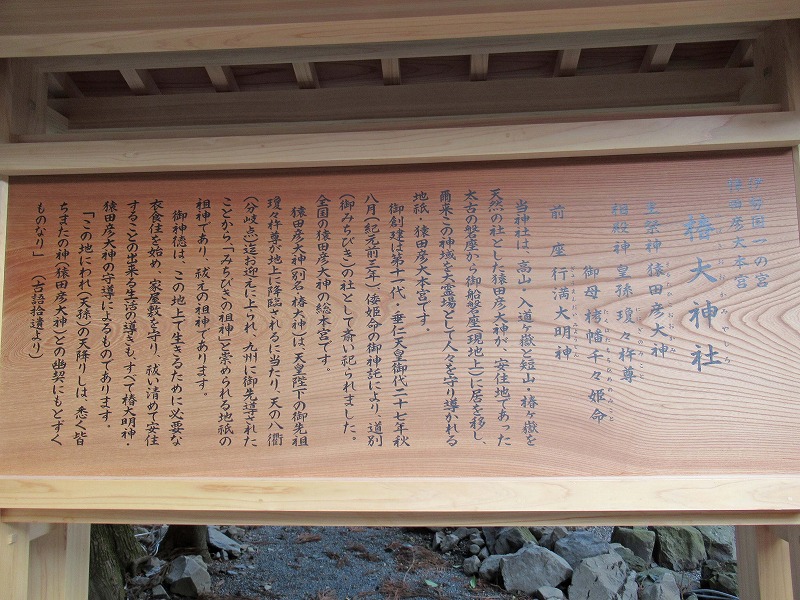 伊勢国一の宮
猿田彦大本宮
椿大神社
つばきおおかみやしろ
主祭神 猿田彦大神
相殿神 皇孫 瓊々杵尊
御母 栲幡千々姫命
前座 行満大明神
当神社は、高山・入道ヶ嶽と短山・椿ヶ嶽を
天然の社とした猿田彦大神が、安住地であった
太古の磐座から御船磐座(現地上)に居を移し、
爾来この神域を大霊場として人々を守り導かれる
地祇、猿田彦大本宮です。
御創建は第十一代・垂仁天皇御代二十七年秋
八月(紀元前三年)、倭姫命の御神託により、道別
(御みちびき)の社として斎い祀られました。
全国の猿田彦大神の総本宮です。
猿田彦大神(別名・椿大神)は、天皇陛下の御先祖
瓊々杵尊が地上に降臨されるに当たり、天の八衢
(分岐点)迄お迎えに上られ、九州に御先導された
ことから、「みちびきの祖神」と崇められる地祇の
祖神であり、祓えの祖神であります。
御神徳は、この地上で生きるために必要な
衣食住を始め、家屋敷を守り、祓い清めて安住
することの出来る生活の導きも、すべて椿大明神・
猿田彦大神の守導によるものであります。
「この地にわれ(天孫)の天降りしは、悉く皆
ちまたの神(猿田彦大神)との幽契にもとずく
ものなり」 (古語拾遺より)